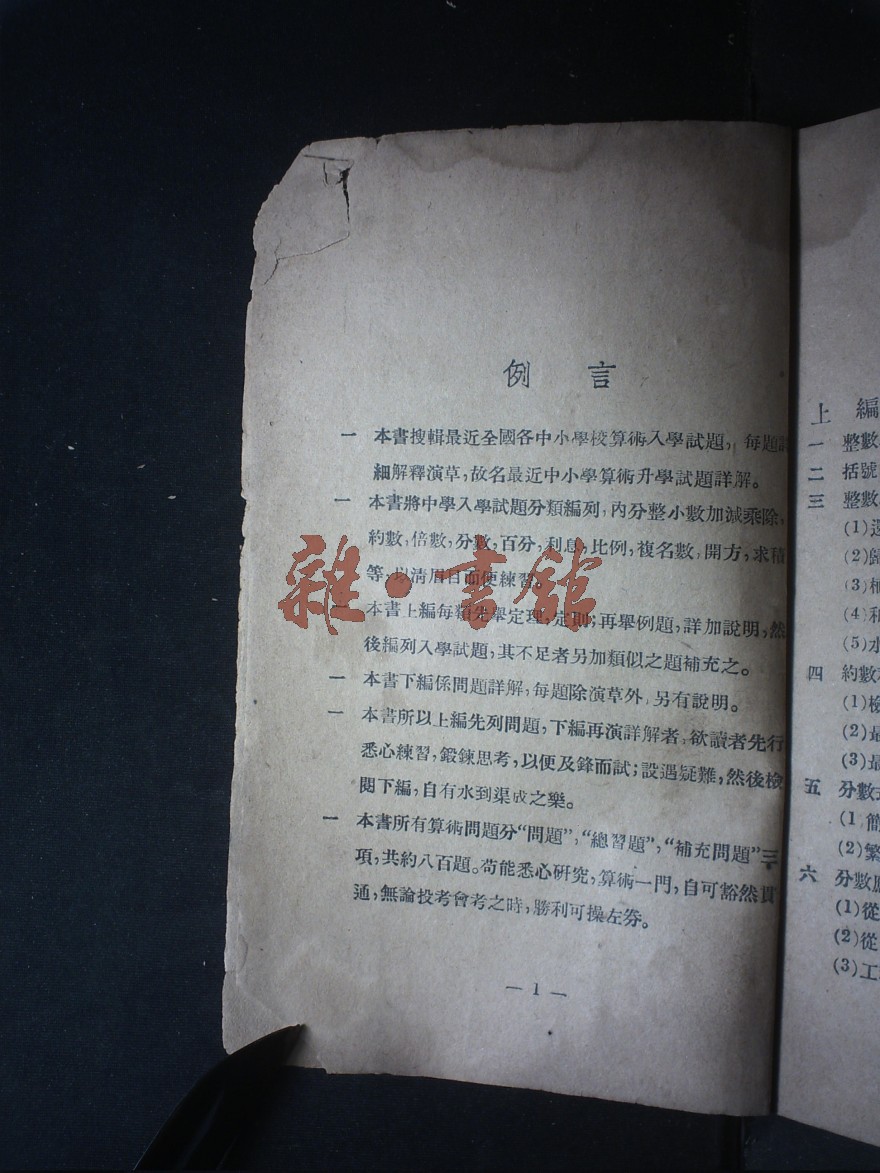 例言
一 本書搜輯最近全國各中小學校算術入學試題, 每題詳
細解釋演草,故名最近中小學算術升學試題詳解。
一 本書將中學入學試題分類編列,內分整小數加減乘除,
約數,倍數,分數,百分,利息,比例,複名數,開方,求積
等,以清眉目而便練習。
一 本書上編每類先舉定理,定則;再舉例題,詳加說明,然
後編列入學試題,其不足者另加類似之題補充之。
一 本書下編係問題詳解,每題除演草外,另有說明。
一 本書所以上編先列問題,下編再演詳解者,欲讀者先行
悉心練習,鍛鍊思考,以便及鋒而試;設遇疑難,然後檢
閱下編,自有水到渠成之樂。
一 本書所有算術問題分“問題”,“總習題”,“補充問題”三
項,共約八百題。苟能悉心研究,算術一門,自可豁然貫
通,無論投考會考之時,勝利可操左券。
— 1 —
雜·書館
上 編
一 整數
二 括號
三 整數
(1)
(2)歸
(3)
(4)和
(5)水
四 約數
(1)檢
(2)最
(3)最
五 分數
(1)簡
(2)繁
六 分數應
(1)從
(2)從
(3)工